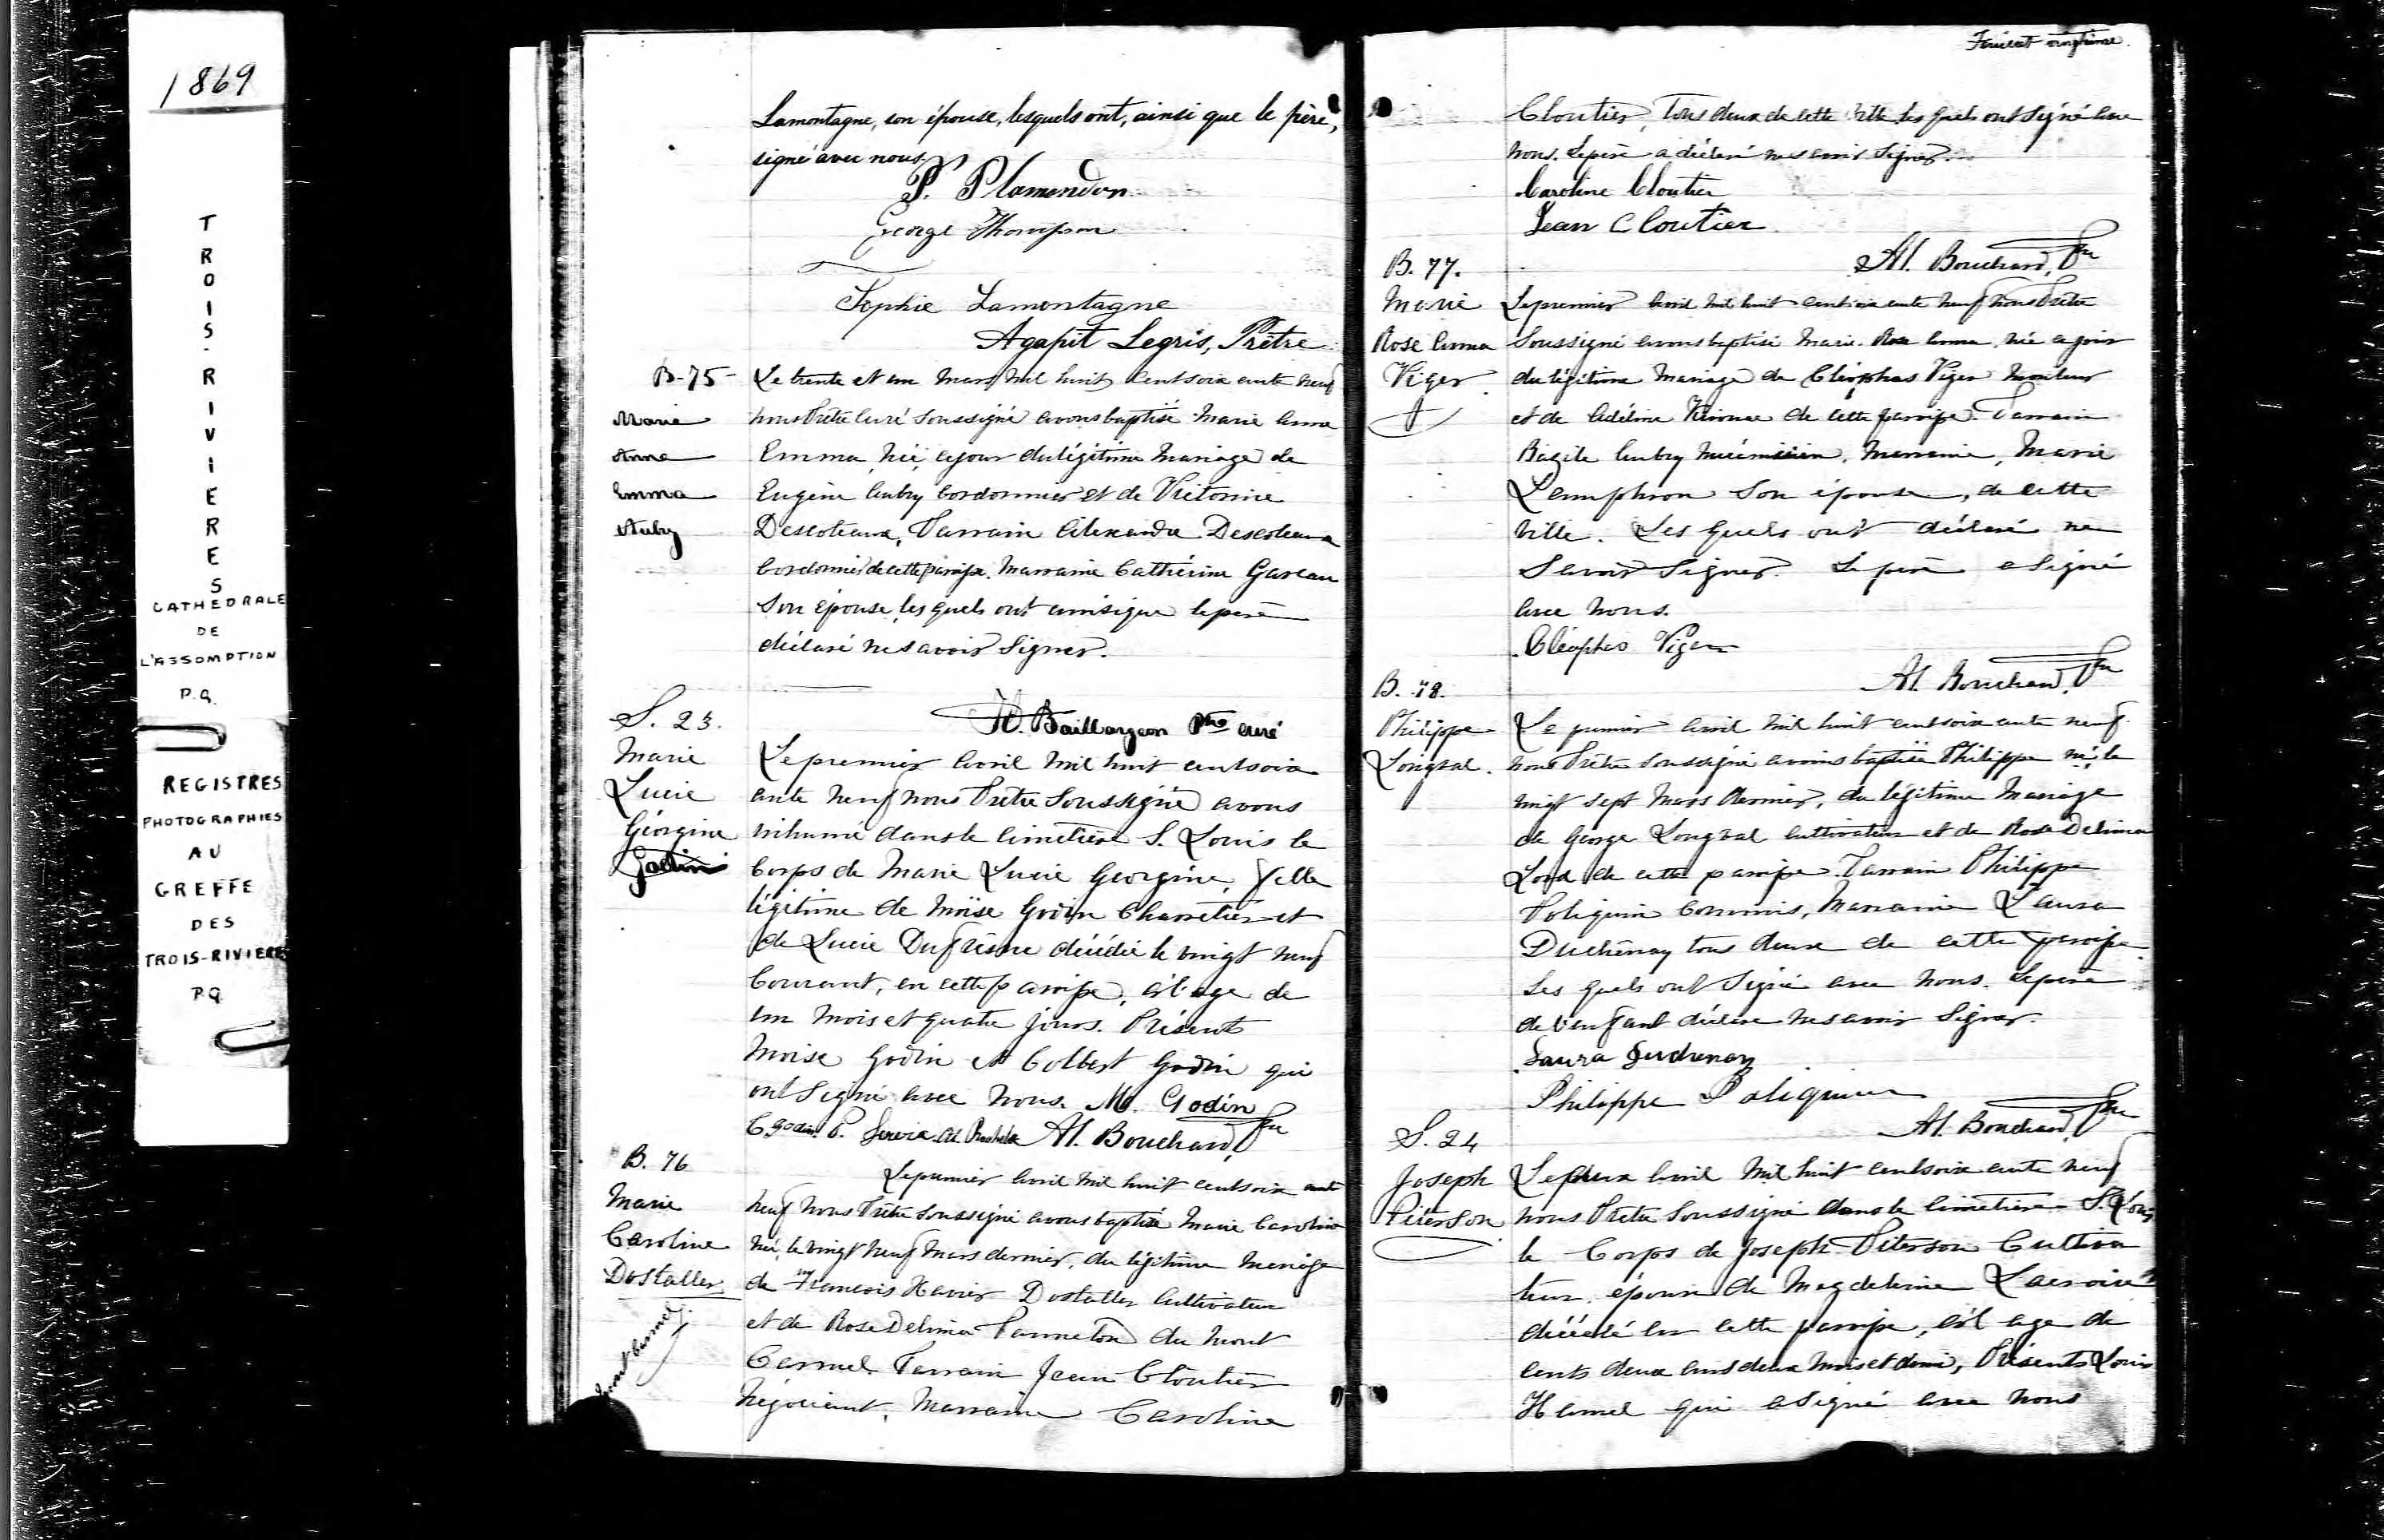 1869
TROIS-RIVIERES
CATHEDRALE
DE
L'ASSOMPTION
P.Q.
REGISTRES
PHOTOGRAPHIES
AU
GREFFE
DES
TROIS-RIVIERES
P.Q
Lamontagne, son épouse, lesquels ont, ainsi que le père,
signé avec nous.
P. Plamondon
George Thompson
Sophie Lamontagne
Agapit Legris, Prêtre
B-75
Marie
Anne
Emma
Auby
Le trente et un Mars mil huit cent soix ante neuf
nous Prêtre Curé soussigné avons baptisé Marie Anna
Emma, née, ce jour du légitime Mariage de
Eugène Aubry Cordonnier et de Victorine
Descoteaux, Parrain Alexandre Descoteaux
Cordonnier de cette paroisse. Marraine Catherine Gareau
Son épouse, les quels ont ainsi que le père
déclaré ne savoir signer.
Baillargeon Ptre Curé
S. 23.
Marie
Lucie
Géorgine
Godin
Le premier Avril Mil huit cent soix
ante neuf nous Prêtre Soussigné avons
inhumé dans le Cimetière S. Louis le
Corps de Marie Lucie Georgine, fille
légitime de Moïse Godin Charretier et
de Lucie Dufresne décédée le vingt neuf
Courant, en cette paroisse, à l'age de
un Mois et quatre jours. Présents
Moïse Godin et Colbert Godin qui
ont signé avec nous. M. Godin
C Godin P. Al. Bouchard, Ptre
B. 76
Marie
Caroline
Dostaller
Le premier Avril Mil huit cent soix ante
neuf nous Prêtre soussigné avons baptisé Marie Caroline
née, le vingt neuf Mars dernier, du légitime Mariage
de François Xavier Dostaller Cultivateur
et de Rose Delima Panneton du Mont
Carmel. Parrain Jean Cloutier
Négociant, Marraine Caroline
Feuillet onzième.
Cloutier, tous deux de cette ville les quels ont signé avec
nous. Le père a déclaré ne savoir signer.
Caroline Cloutier
Jean Cloutier
Al. Bouchard, Ptre
B. 77.
Marie
Rose Anna
Viger
Le premier Avril mil huit cent soix ante neuf nous Prêtre
Soussigné avons baptisé Marie Rose Anna, née ce jour
du légitime Mariage de Cléophas Viger
et de Adéline de cette paroisse. Parrain
Bazile Aubry Mécanicien, Marraine, Marie
Lamphron Son épouse, de cette
ville. Les quels ont déclaré ne
Savoir Signer. Le père a signé
avec nous.
Cléophas Viger
Al. Bouchard, Ptre
B. 78.
Philippe
Longval.
Le premier Avril Mil huit cent soix ante neuf
nous Prêtre soussigné avons baptisé Philippe né, le
vingt sept Mars dernier, du légitime Mariage
de George Longval Cultivateur et de Rose Delima
Lord de cette paroisse. Parrain Philippe
Poliquin Commis, Marraine Laura
Duchènay tous deux de cette paroisse
Les quels ont signé avec nous. Le père
de l'enfant déclare ne savoir signer.
Laura Duchenay
Philippe Poliquin
Al. Bouchard, Ptre
S. 24
Joseph
Péterson
Le deux Avril Mil huit cent soix ante neuf
nous Prêtre Soussigné dans le Cimetière S. Louis
le Corps de Joseph Péterson Cultiva
teur, époux de Magdeleine Lacroix
décédé en cette paroisse, à l'age de
cents deux ans deux mois et demi, Présents Louis
Hamel qui a signé avec nous